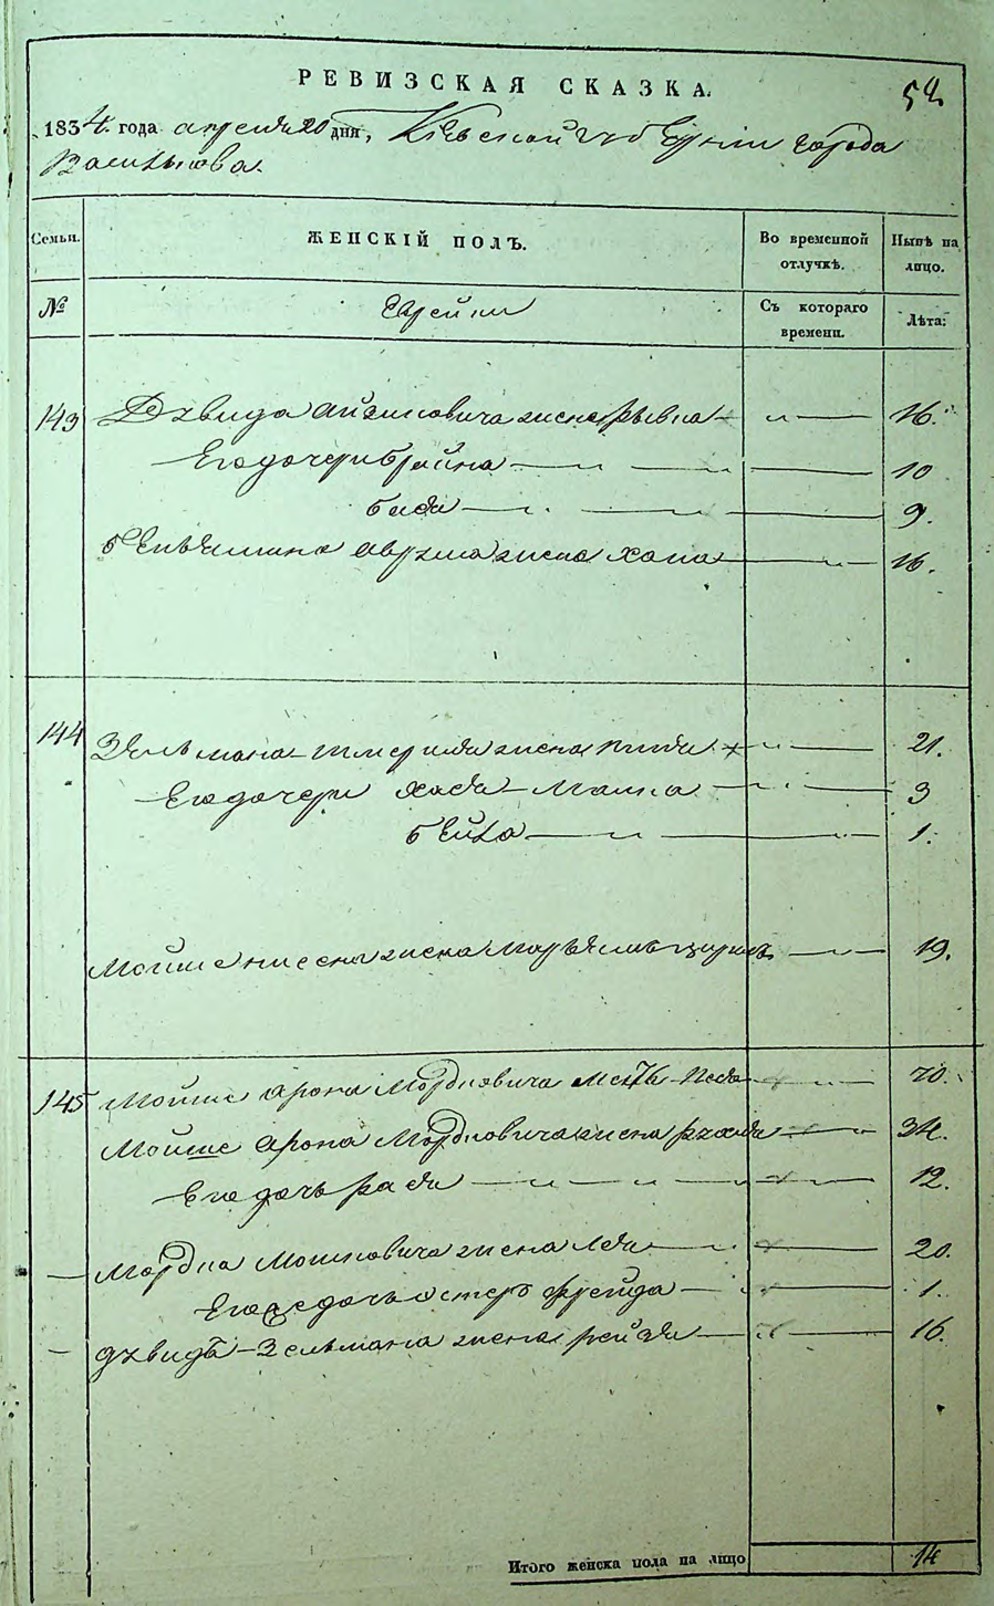 РЕВИЗСКАЯ СКАЗКА.
54
1834. года апреля 20 дня, Киевской губернии города
Василькова.
Семьи. ЖЕНСКІЙ ПОЛЪ. Во временной отлучкѣ. Нынѣ на лицо.
№ Еврейки Съ котораго времени. Лѣта:
143 Дувида жена Рывка 16.
Его дочери Брайна 10
Бася 9.
Аврума жена Хана 16.
144 Зельмана-Шмериля жена 21.
Его дочери Хая-Малка 3
Бейла 1.
Мойше жена 19.
145 Мойше Арона Мордковича мать Песя 70.
Мойше Арона Мордковича жена Рухля 34.
Его дочь Рася 12.
Мордка Мошковича жена Лея 20.
Его дочь Эстер Фрейда 1.
Дувидъ-Зельмана жена Рейзя 16.
Итого женска пола на лицо 14